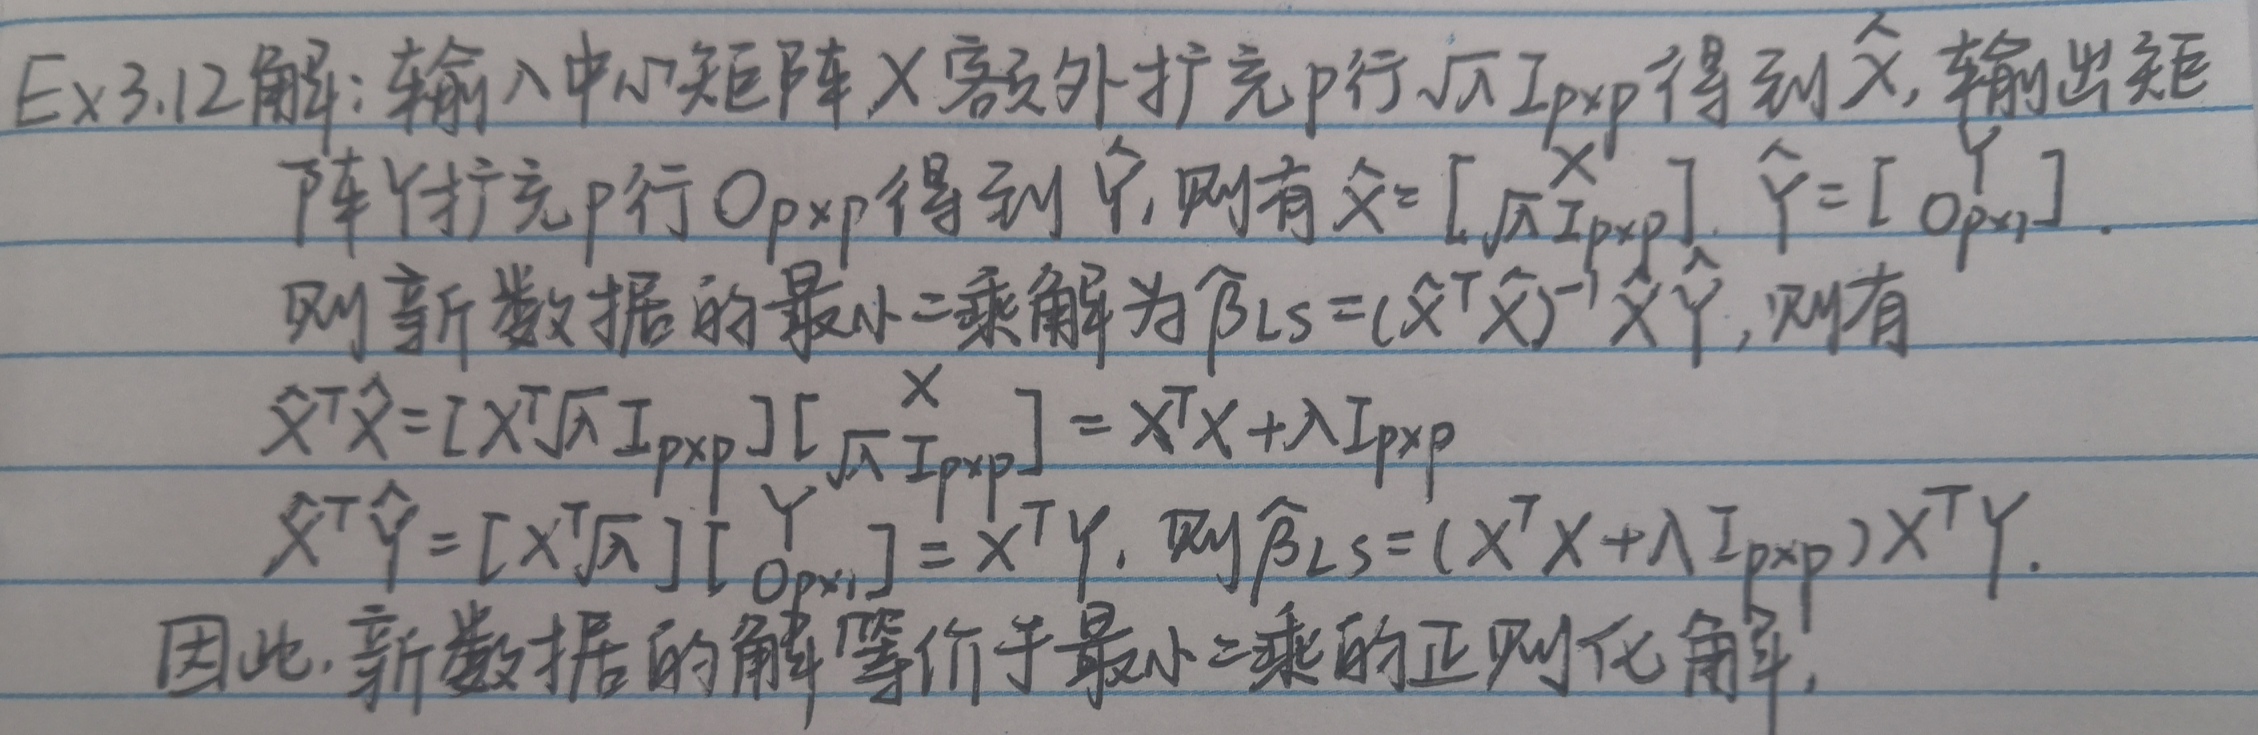 Ex3.12解：输入中心矩阵X额外扩充p行√λ I_{p×p}得到X̂，输出矩
阵Y扩充p行O_{p×p}得到Ŷ，则有X̂=[X √λ I_{p×p}]．Ŷ=[Y O_{p×1}]．
则新数据的最小二乘解为β̂_{LS}=(X̂^T X̂)^{-1} X̂ Ŷ，则有
X̂^T X̂=[X^T √λ I_{p×p}][X √λ I_{p×p}]=X^T X+λ I_{p×p}
X̂^T Ŷ=[X^T √λ][Y O_{p×1}]=X^T Y．则β̂_{LS}=(X^T X+λ I_{p×p})X^T Y．
因此．新数据的解等价于最小二乘的正则化解．